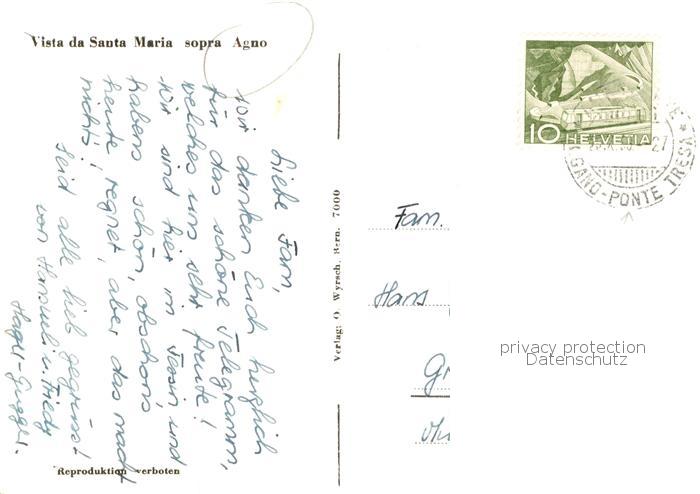 Vista da Santa Maria sopra Agno
Liebe Fam,
wir danken Euch herzlich
für das schöne Telegramm,
welches uns sehr freute!
Wir sind hier im Tessin, und
habens schön, obschons
heute regnet, aber das macht
nichts!
Seid alle lieb gegrüsst
von Hansueli u. Friedy
Hagi-Guggli.
Reproduktion verboten
Verlag: O. Wyrsch, Bern. 7000
10 HELVETIA
27
GANO-PONTE TRESA
Fam.
Hans
privacy protection
Datenschutz